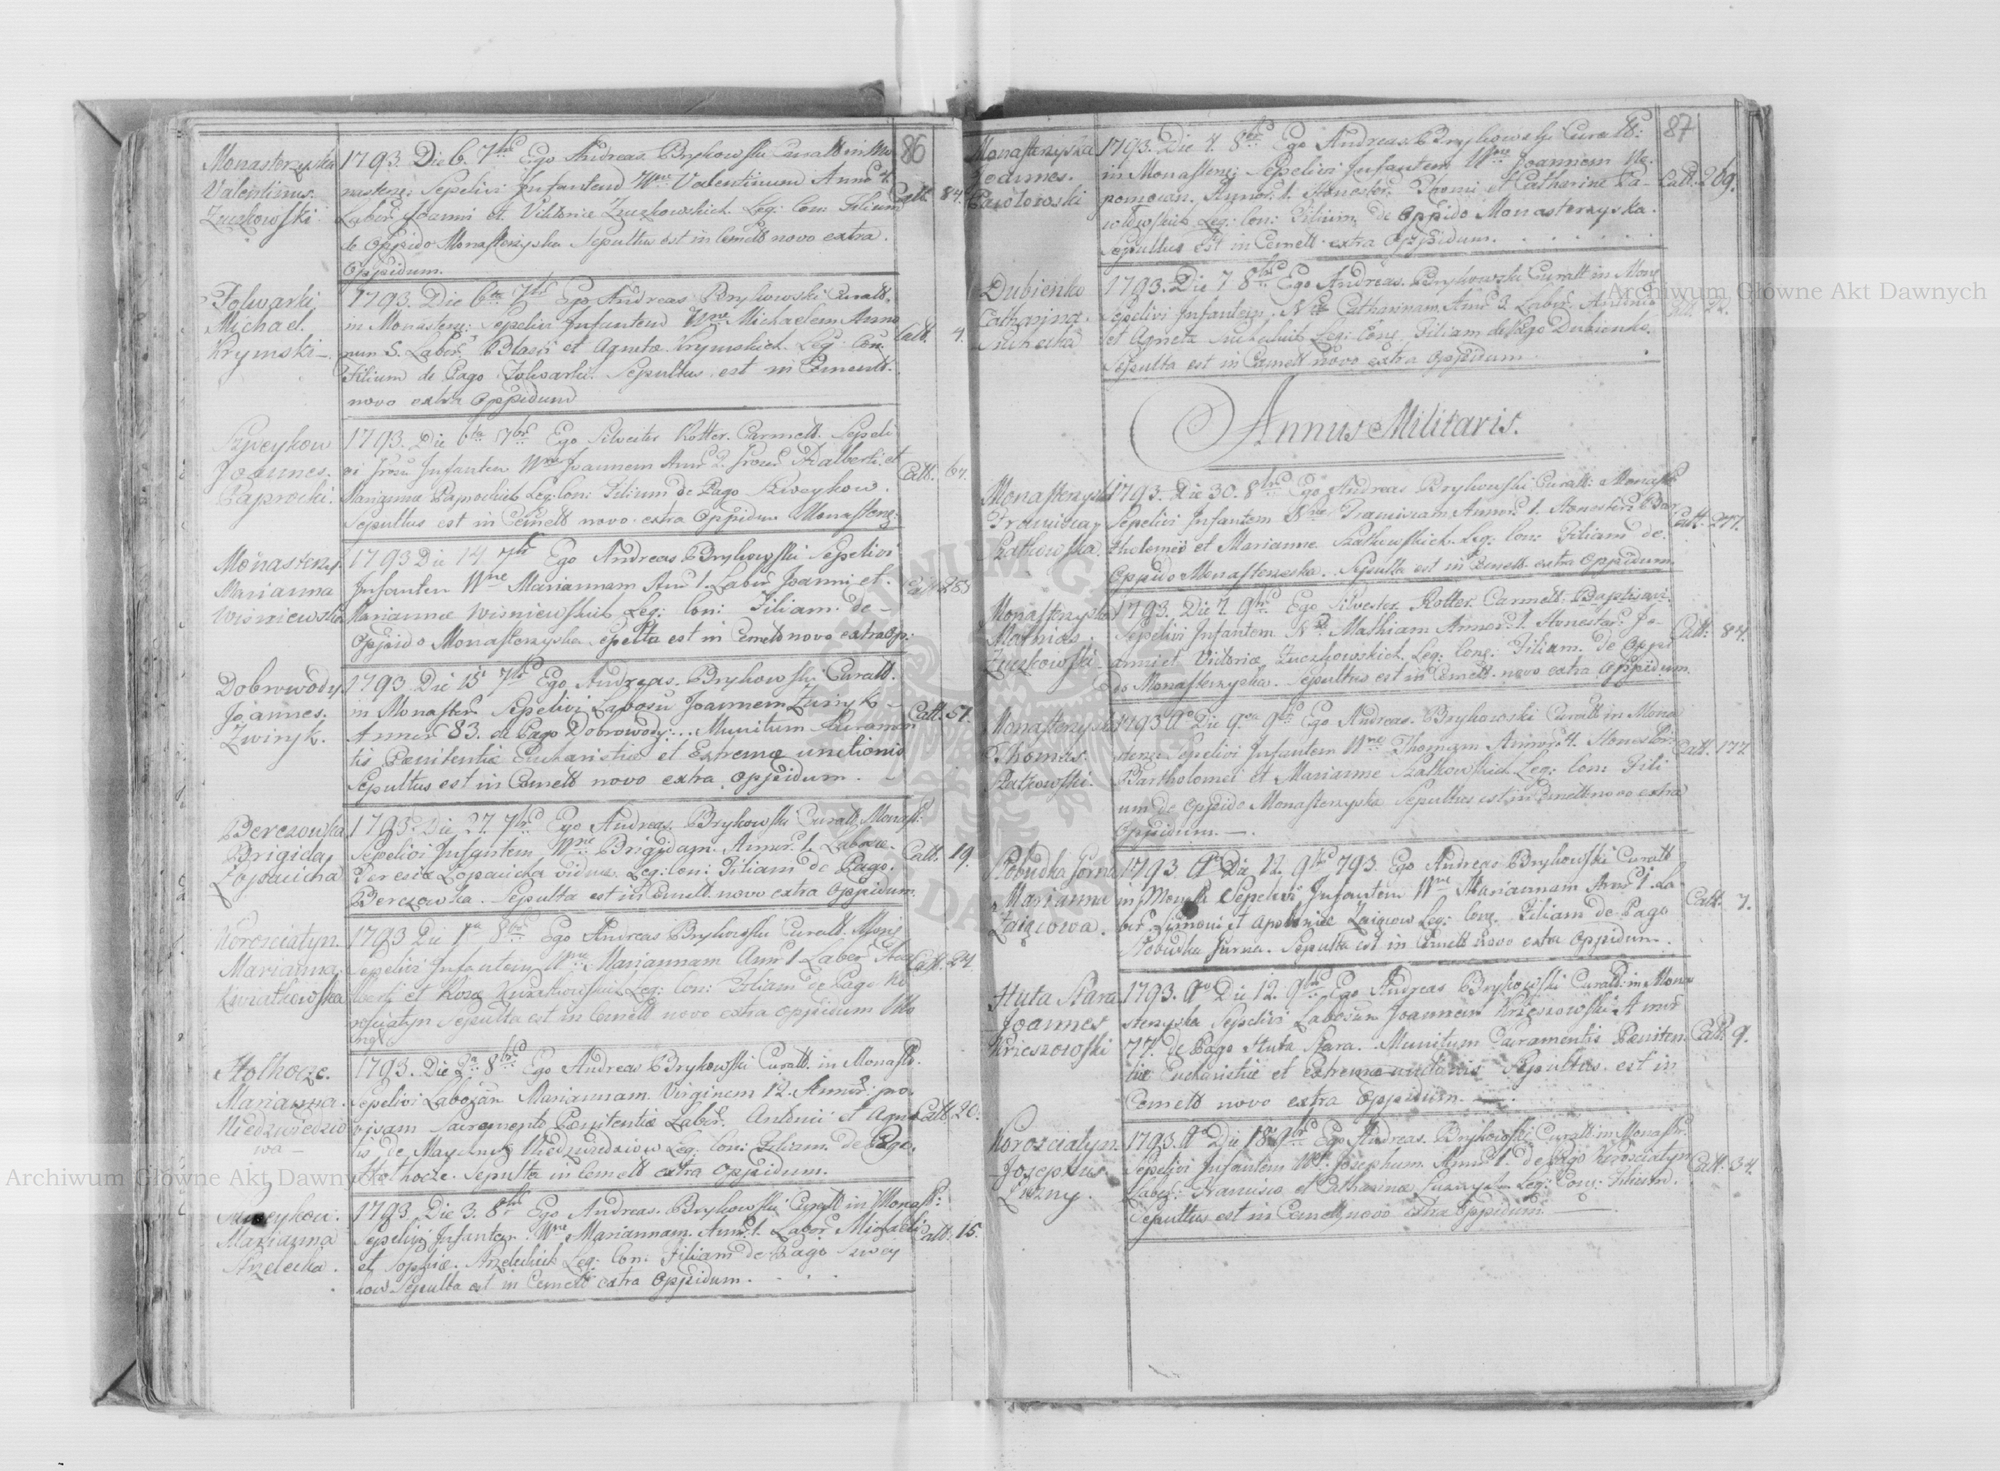 86
Monasterzyska
Valentinus.
Zuczkowski.
1793. Die 6. 7bris Ego Andreas Brykowski Curatt in Mo
nasterz: Sepelivi Infantem Nne Valentinum Anno 4.
Labor. Joanni et Viktoriæ Zuczkowskich. Leg: Con: Filium
de Oppido Monasterzyska Sepultus est in Cemett novo extra.
Oppidum.
Catt. 84.
Folwarki
Michael.
Krymski
1793. Die 6ta 7bris Ego Andreas Brykowski Curatt.
in Monasterz: Sepelivi Infantem Nne Michaelem Anno
rum 5. Labor. Blasii et Agnetæ Krymskich. Leg: Con:
Filium de Pago Folwarki. Sepultus est in Cemett.
novo extra Oppidum
Catt. 4.
Szweykow
Joannes.
Paprocki.
1793. Die 6ta 7bris Ego Silvester Rotter. Carmett. Sepeli
vi Infantem Nne Joannem Ann. 2. Adalberti et
Mariannæ Paprockich Leg: Con: Filium de Pago Szweykow.
Sepultus est in Cemett novo extra Oppidum Monasterz:
Catt. 67.
Monasterzy.
Marianna
Wisniewska
1793 Die 14 7bris Ego Andreas Brykowski Sepelivi
Infantem Nne Mariannam Ann 1. Labor Joanni et
Mariannæ Wisniewskich Leg: Con: Filiam de
Oppido Monasterzyska Sepulta est in Cemett novo extra Op:
Catt. 253
Dobrowody
Joannes.
Zwinyk.
1793 Die 15 7bris Ego Andreas. Brykowski Curatt.
in Monaster Sepelivi Labosu Joannem Zwinyk
Annor 83. de Pago Dobrowody... Munitum Sacramen
tis Pænitentiæ Eucharistiæ et Extremæ unctionis
Sepultus est in Cemett novo extra Oppidum.
Catt. 51.
Berezowka
Brigida
Lopaucha
1793. Die 27. 7bris Ego Andreas. Brykowski Curatt. Monast:
Sepelivi Infantem Nne Brigidam. Annor. 1. Labor.
Teresiæ Lopaucha viduæ. Leg: Con: Filiam de Pago.
Berezowka. Sepulta est in Cemett. novo extra Oppidum.
Catt. 19.
Korosciatyn.
Marianna.
Kwiatkowska
1793 Die 1ma 8bris Ego Andreas Brykowski Curatt. Mons
Sepelivi Infantem Nne. Mariannam Ann 1 Labor
et Rosæ Kwiatkowskich Leg: Con: Filiam de Pago Ko
rosciatyn Sepulta est in Cemett novo extra Oppidum
Catt. 24.
Holhocze.
Marianna.
Niedzwiedzio
wa
1793. Die 2da 8bris Ego Andreas Brykowski Curatt. in Monast.
Sepelivi Labosam Mariannam. Virginem 12. Annor. pro
visam Sacramento Pænitentiæ Labor. Antonii et Agne
tis de Niedzwiedziow Leg: Con: Filiam. de Pago.
Holhocze. Sepulta in Cemett extra Oppidum.
Catt. 20.
Szweykow.
Marianna
Strzelecka.
1793. Die 3. 8bris Ego Andreas. Brykowski Curatt in Monast:
Sepelivi Infantem Nne Mariannam. Ann. 1. Labor. Michaeli
et Sophiæ. Strzeleckich Leg: Con: Filiam de Pago Szwey
kow Sepulta est in Cemett extra Oppidum.
Catt. 15.
87
Monasterzyska
Joannes.
Pawlowski
1793. Die 4. 8bris Ego Andreas Brykowski Curatt:
in Monasterz: Sepelivi Infantem Nne Joannem Ne
pomocen. Annor. 1. Honestor. Thomæ et Catharinæ Pa
wlowskich Leg: Con: Filium de Oppido Monasterzyska.
Sepultus est in Cemett extra Oppidum.
Catt. 269.
Dubienko
Catharina.
Suchecka
1793. Die 7 8bris Ego Andreas. Brykowski Curatt in Mons
Sepelivi Infantem. Catharinam. Ann. 3. Labor.
et Agnetæ Leg: Con: Filiam de Pago Dubienko.
Sepulta est in Cemett novo extra Oppidum
Catt. 22.
Annus Militaris.
Monasterzyska
Francisca
Szatkowska
1793. Die 30. 8bris Ego Andreas Brykowski Curatt: Monast:
Sepelivi Infantem Nne Franciscam Annor. 1. Honestor Bar
tholomei et Mariannæ Szatkowskich. Leg: Con: Filiam de.
Oppido Monasterzyska. Sepulta est in Cemett extra Oppidum.
Catt. 277.
Monasterzyska
Mathias.
Zuczkowski
1793. Die 7. 9bris Ego Silvester Rotter. Carmett:
Sepelivi Infantem Mathiam Annor. 1. Honestor. Jo
anni et Victoriæ Zuczkowskich Leg: Con: Filium. de Oppi
do Monasterzyska. Sepultus est in Cemett. novo extra Oppidum.
Catt. 84.
Monasterzyska
Thomas.
Szatkowski.
1793 Die 9na 9bris Ego Andreas. Brykowski Curatt in Mona
sterz. Sepelivi Infantem Nne Thomam Annor. 4. Honestor:
Bartholomei et Mariannæ Szatkowskich Leg: Con: Fili
um de Oppido Monasterzyska Sepultus est in Cemett novo extra
Oppidum.
Catt. 177
Slobudka Gorna
Marianna
Zaiącowa.
1793. Die 12. 9bris 793. Ego Andreas Brykowski Curatt
in Monast Sepelivi Infantem Nne Mariannam Ann 1. La
bor. Simoni et Apoloniæ Zaiącow Leg: Con: Filiam de Pago
Slobudka Gurna. Sepulta est in Cemett novo extra Oppidum.
Catt. 7.
Huta Stara
Joannes
Krieszowski
1793. Die 12. 9bris Ego Andreas Brykowski Curatt: in Mona
sterzyska Sepelivi Labosum Joannem Krieszowski Annor
77. de Pago Huta Stara. Munitum Sacramentis Pæniten
tiæ Eucharistiæ et extremæ unctionis Sepultus. est in
Cemett novo extra Oppidum.
Catt. 9.
Korosciatyn.
Josephus.
1793. Die 18 9bris Ego Andreas. Brykowski Curatt: in Monast:
Sepelivi Infantem Nne. Josephum. Ann. 1. de Pago Korosciatyn
Labor: Francisci et Catharinæ Leg: Con: Filium.
Sepultus est in Cemett novo extra Oppidum.
Catt. 34.
Archiwum Główne Akt Dawnych
Archiwum Główne Akt Dawnych